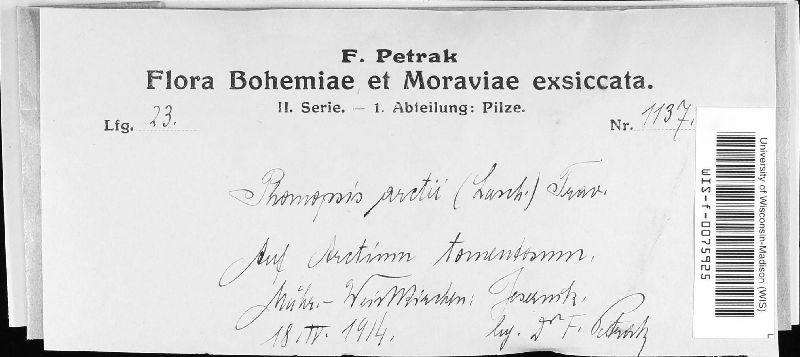 F. Petrak
Flora Bohemiae et Moraviae exsiccata.
II. Serie. – 1. Abteilung: Pilze.
Lfg. 23.
Nr. 1137.
Phomopsis arctii (Lasch.) Trav.
Auf Arctium tomentosum.
Mähr.-Weisskirchen: Jesernik.
18. IV. 1914. lgt. Dr F. Petrak
University of Wisconsin-Madison (WIS)
WIS-f-0075925